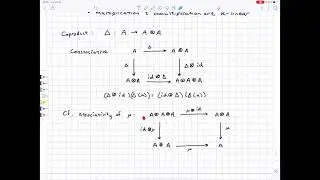 • Multiplication & comultiplication are K-linear
Coproduct : Δ : A → A ⊗ A
Coassociative
A Δ A ⊗ A
Δ Δ ⊗ id
A ⊗ A id ⊗ Δ A ⊗ A ⊗ A
(Δ ⊗ id)(Δ(x)) = (id ⊗ Δ)(Δ(x))
Cf. associativity of μ: A ⊗ A ⊗ A μ ⊗ id A ⊗ A
id ⊗ μ μ
A ⊗ A μ A